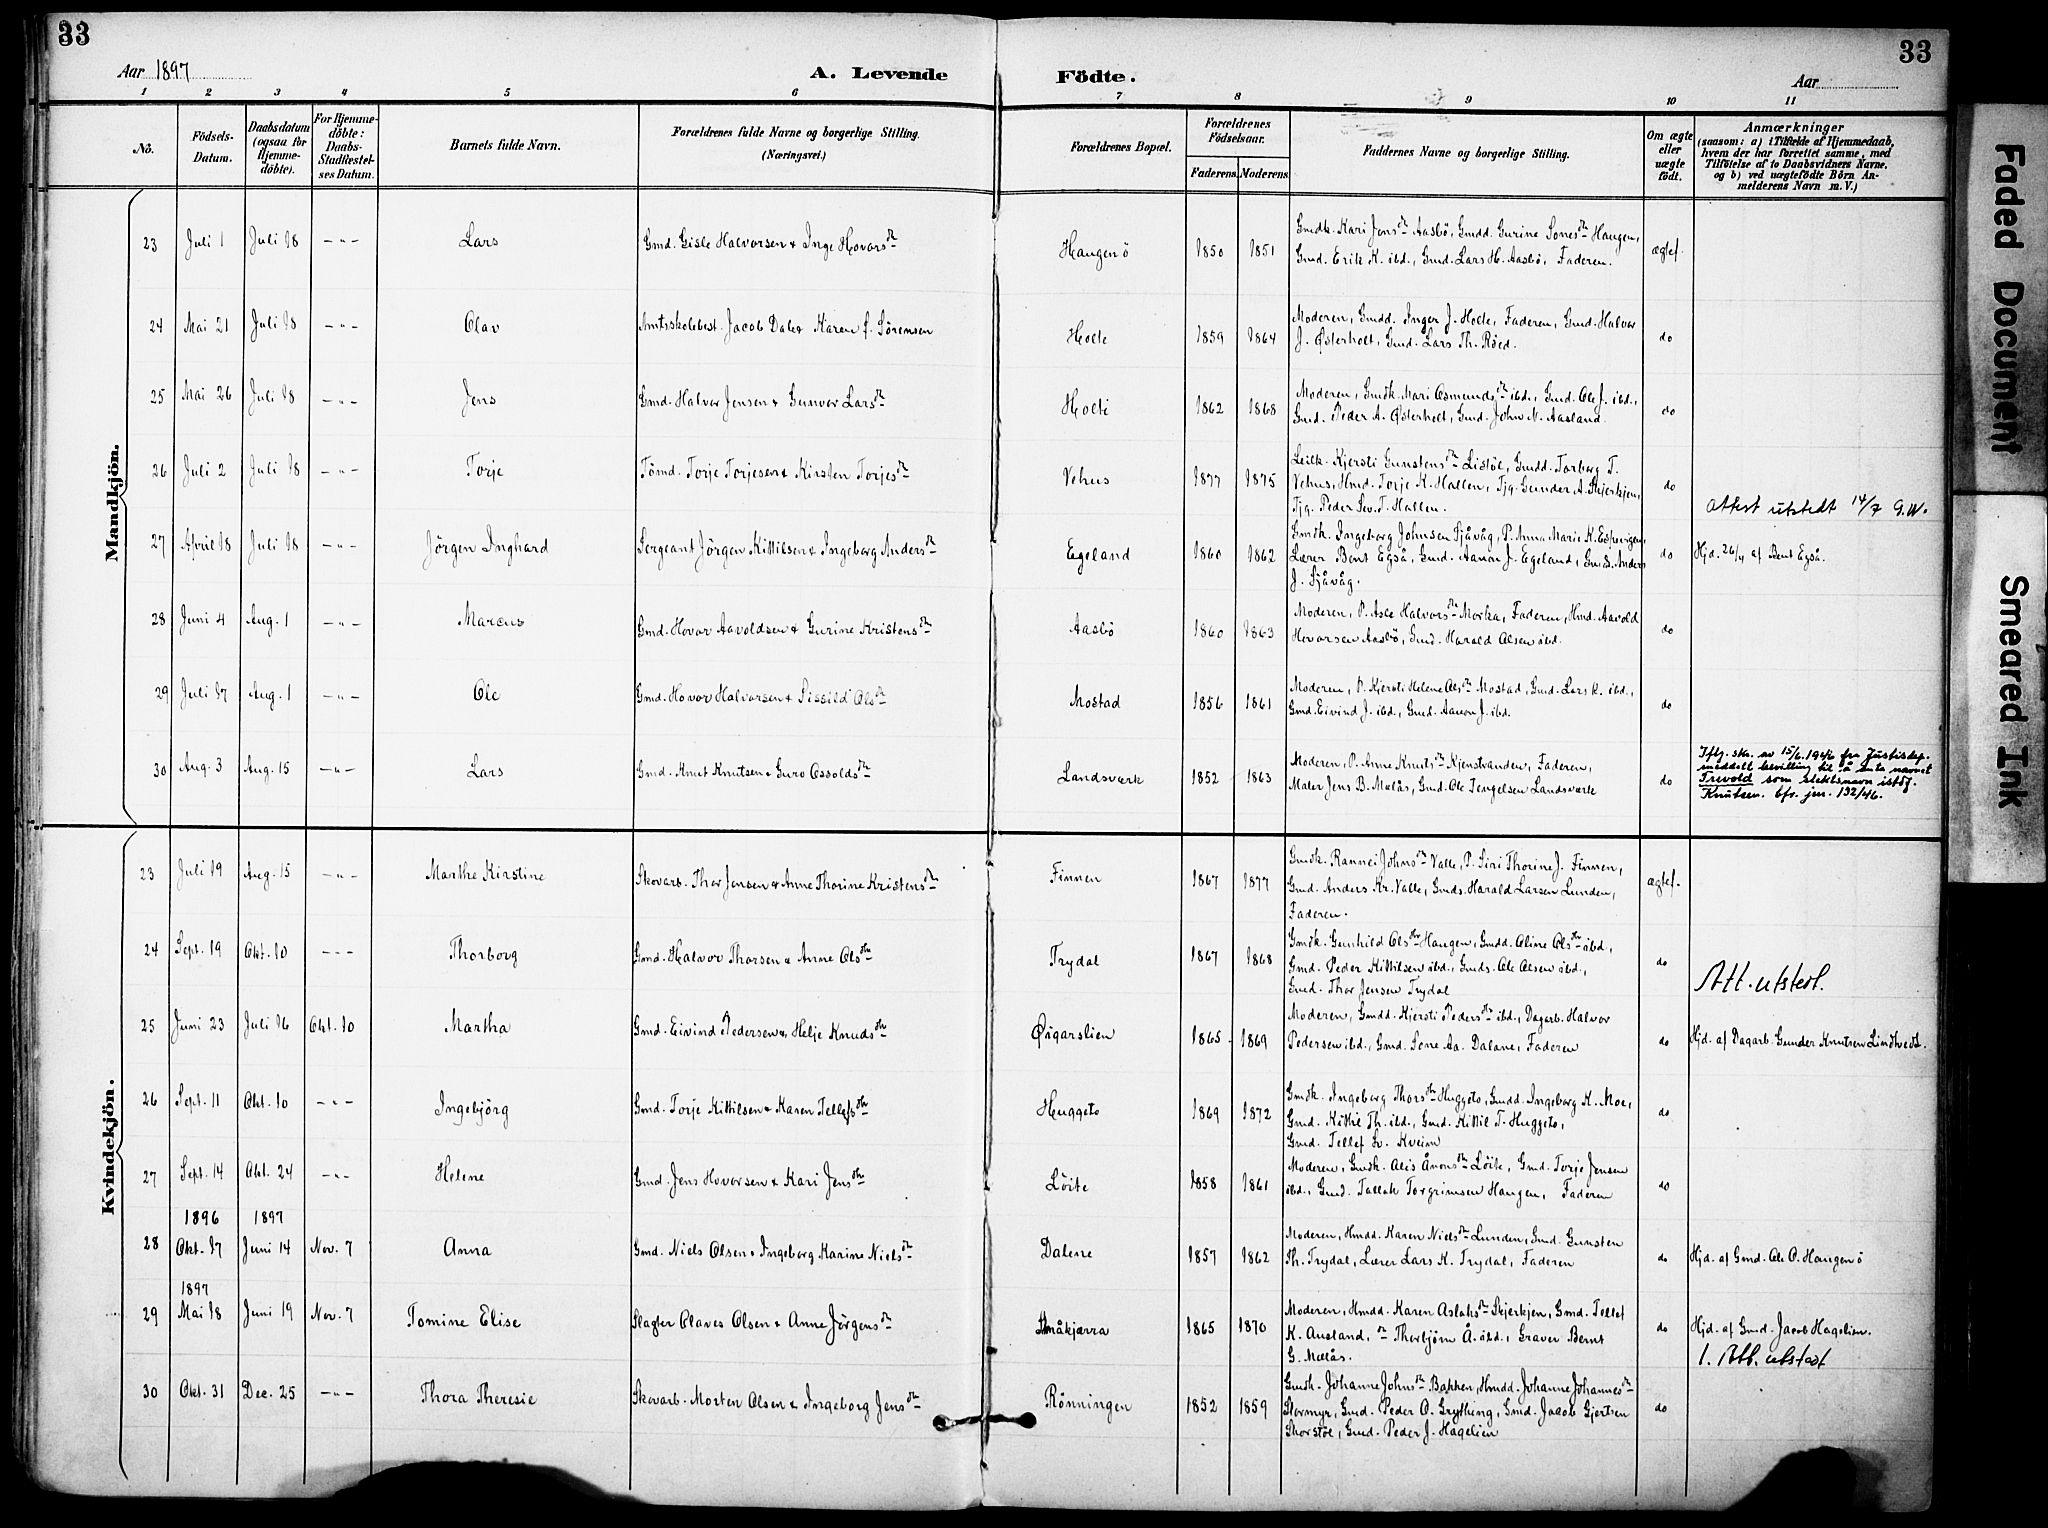 33
Aar 1897
A. Levende Födte.
33
Aar
1 2 3 4 5 6 7 8 9 10 11
No.
Födsels-Datum.
Daabsdatum (ogsaa for Hjemme-döbte).
For Hjemme-döbte: Daabs-Stadfæstel-ses Datum.
Barnets fulde Navn.
Forældrenes fulde Navne og borgerlige Stilling. (Næringsvei.)
Forældrenes Bopæl.
Forældrenes Födselsaar.
Faderens. Moderens.
Faddernes Navne og borgerlige Stilling.
Om ægte eller uægte födt.
Anmærkninger
(saasom: a) i Tilfælde af Hjemmedaab, hvem der har forrettet samme, med Tilföielse af to Daabsvidners Navne, og b) ved uægtefödte Börn An-melderens Navn m.V.)
Mandkjön.
23 Juli 1 Juli 18 -"- Lars Gmd. Gisle Halvorsen & Inge Hovorsdtr Haugenö 1850 1851 Gmdk. Kari Jensdtr Aasbö, Gmdd. Gurine Sonesdtr Haugen, ægtef.
Gmd. Erik K. ibd., Gmd. Lars H. Aasbö, Faderen.
24 Mai 21 Juli 18 -"- Olav Amtsskolebest. Jacob Dale & Karen f. Sörensen Holte 1859 1864 Moderen, Gmdd. Inger J. Holte, Faderen, Gmd. Halvor do
J. Østerholt, Gmd. Lars Th. Röed.
25 Mai 26 Juli 18 -"- Jens Gmd. Halvor Jensen & Gunvor Larsdtr Holti 1862 1868 Moderen, Gmdk. Mari Osmundsdtr ibd., Gmd. Ole J. ibd., do
Gmd. Peder A. Østerholt, Gmd. John N. Aasland.
26 Juli 2 Juli 18 -"- Torje Tömd. Torje Torjesen & Kirsten Torjesdtr Vehus 1877 1875 Leilk. Kjersti Gunstensdtr Listöl, Gmdd. Torborg T. do
Vehus, Hmd. Torje K. Hallen, Tjg. Gunder A. Skjerkjen,
Tjg. Peder Sev. T. Hallen.
Attest utstedt 14/7 G.W.
27 April 18 Juli 18 -"- Jörgen Inghard Sergeant Jörgen Kittilsen & Ingeborg Andersdtr Egeland 1860 1862 Gmdk. Ingeborg Johnsen Sjåvåg, P. Anna Marie K. Espevigen, do Hjd. 26/4 af Bent Egså.
Lærer Bent Egså, Gmd. Aanon J. Egeland, Gmds. Anders
J. Sjåvåg.
28 Juni 4 Aug. 1 -"- Marcus Gmd. Hovor Aavoldsen & Gurine Kristensdtr Aasbö 1860 1863 Moderen, P. Asle Halvorsdtr Morka, Faderen, Hmd. Aavold do
Hovorsen Aasbö, Gmd. Harald Olsen ibd.
29 Juli 17 Aug. 1 -"- Ole Gmd. Hovor Halvorsen & Sissild Olsdtr Mostad 1856 1861 Moderen, P. Kjersti Helene Olsdtr Mostad, Gmd. Lars K. ibd., do
Gmd. Eivind J. ibd., Gmd. Aanon J. ibd.
30 Aug. 3 Aug. 15 -"- Lars Gmd. Knut Knutsen & Guro Ossoldsdtr Landsverk 1852 1863 Moderen, P. Anne Knutsdtr Kjenstranden, Faderen, do
Maler Jens B. Mælås, Gmd. Ole Tengelsen Landsverk
Iflg. skr. av 15/6.1946 fra Justisdep. meddelt bevilling til å anta navnet Trevold som slektsnavn istdf. Knutsen. Cfr. jnr. 132/46.
Kvindekjön.
23 Juli 19 Aug. 15 -"- Marthe Kirstine Skovarb. Thor Jensen & Anne Thorine Kristensdtr Finnen 1867 1877 Gmdk. Rannei Johnsdtr Valle, P. Siri Thorine J. Finnen, ægtef.
Gmd. Anders Kr. Valle, Gmds. Harald Larsen Lunden,
Faderen.
24 Sept. 19 Okt. 10 -"- Thorborg Gmd. Halvor Thorsen & Anne Olsdtr Trydal 1867 1868 Gmdk. Gunhild Olsdtr Haugen, Gmdd. Oline Olsdtr ibd., do
Gmd. Peder Kittilsen ibd., Gmds. Ole Olsen ibd.,
Gmd. Thor Jensen Trydal
Att. utsted.
25 Juni 23 Juli 16 Okt. 10 Martha Gmd. Eivind Pedersen & Helje Knudsdtr Øigarslien 1865 1869 Moderen, Gmdd. Kjersti Pedersdtr ibd., Dagarb. Halvor do Hjd. af Dagarb. Gunder Knutsen Lindtvedt.
Pedersen ibd., Gmd. Sone Aa. Dalane, Faderen
26 Sept. 11 Okt. 10 -"- Ingebjörg Gmd. Torje Kittilsen & Karen Tellefsdtr Huggeto 1869 1872 Gmdk. Ingeborg Thorsdtr Huggeto, Gmdd. Ingeborg K. Moe, do
Gmd. Kittil Th. ibd., Gmd. Kittil T. Huggeto,
Gmd. Tellef Kveim
27 Sept. 14 Okt. 24 -"- Helene Gmd. Jens Hovorsen & Kari Jensdtr Löite 1858 1861 Moderen, Gmdk. Alis Ånonsdtr Löite, Gmd. Torje Jensen do
ibd., Gmd. Tallak Torgrimsen Haugen, Faderen
1896 1897
28 Okt. 17 Juni 14 Nov. 7 Anna Gmd. Niels Olsen & Ingeborg Karine Nielsdtr Dalene 1857 1862 Moderen, Hmdd. Karen Nielsdtr Lunden, Gmd. Gunsten do Hjd. af Gmd. Ole P. Haugenö
Th. Trydal, Lærer Lars K. Trydal, Faderen
1897
29 Mai 18 Juni 19 Nov. 7 Tomine Elise Slagter Olaves Olsen & Anne Jörgensdtr Småkjærra 1865 1870 Moderen, Hmdd. Karen Aslaksdtr Skjerkjen, Gmd. Tellef do Hjd. af Gmd. Jacob Hagelien.
K. Ausland, Thorbjörn Å. ibd., Graver Bernt
G. Mælås.
1. Att. utstedt
30 Okt. 31 Dec. 25 -"- Thora Theresie Skovarb. Morten Olsen & Ingeborg Jensdtr Rönningen 1852 1859 Gmdk. Johanne Johnsdtr Bakken, Hmdd. Johanne Johannesdtr do
Stormyr, Gmd. Peder O. Grytting, Gmd. Jacob Gjertsen
Skorstöl, Gmd. Peder J. Hagelien
Faded Document
Smeared Ink